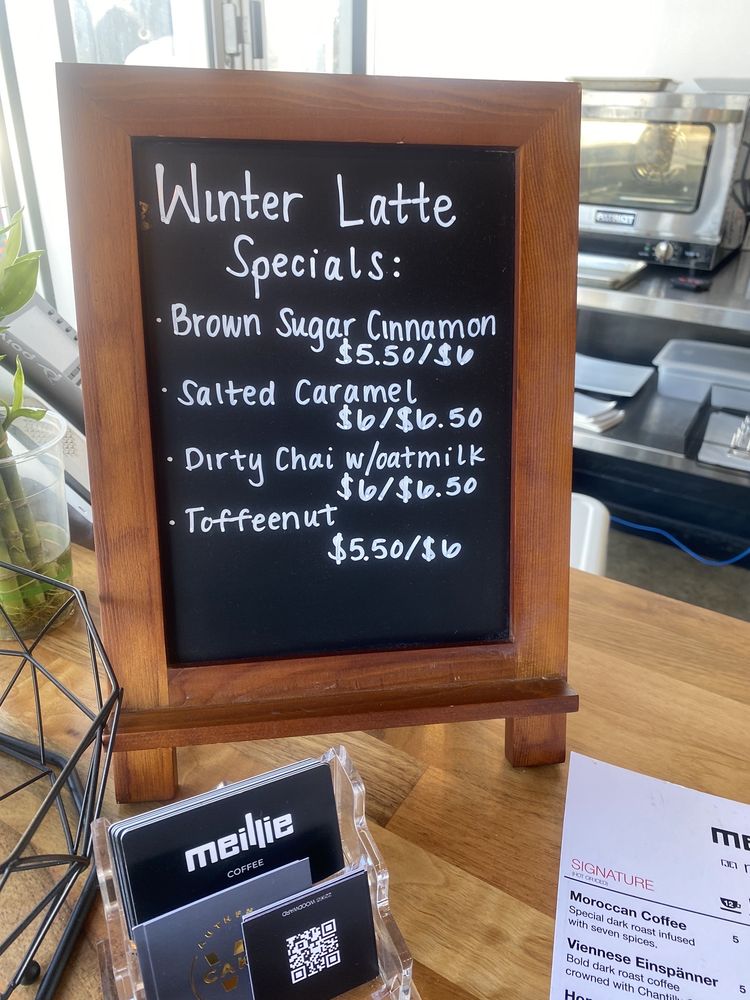 Winter Latte
Specials:
· Brown Sugar Cinnamon
$5.50/$6
· Salted Caramel
$6/$6.50
· Dirty Chai w/oatmilk
$6/$6.50
· Toffeenut
$5.50/$6
meillie
COFFEE
22XX2 WOODWARD
SIGNATURE
(HOT OR ICED)
12
Moroccan Coffee
Special dark roast infused
with seven spices.
5
Viennese Einspänner
Bold dark roast coffee
crowned with Chantill
5